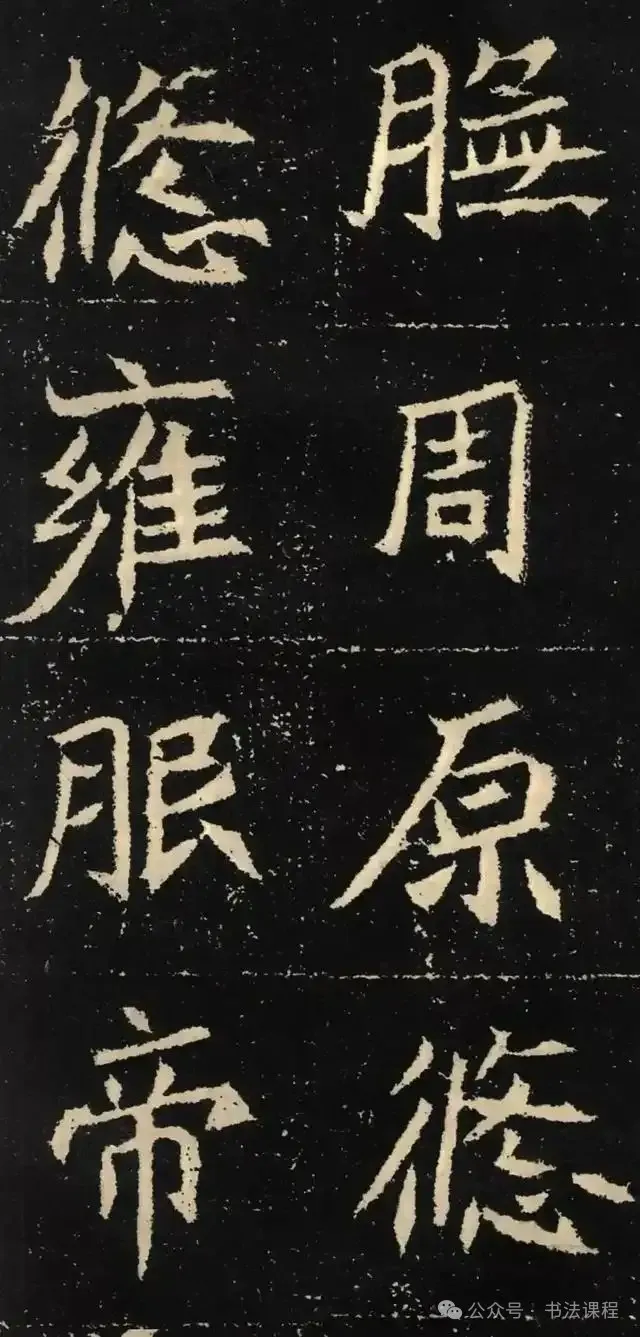 膴周原悠
悠雍服帝
公众号 · 书法课程